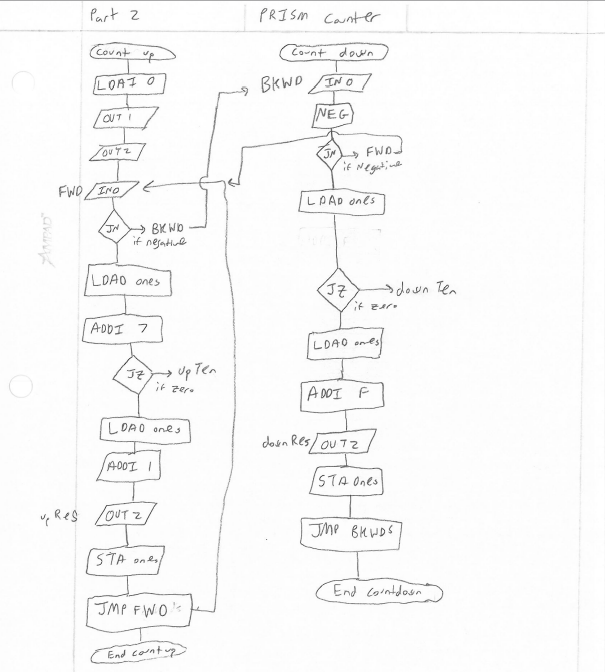 Part 2
PRISM Counter
Count up
LDAI 0
OUT1
OUT2
FWD
IN0
JN
BKWD
if negative
LDAD ones
ADDI 7
JZ
up Ten
if zero
LDAD ones
ADDI 1
upRes
OUT2
STA ones
JMP FWD
End countup
Count down
BKWD
IN0
NEG
JN
FWD
if Negative
LDAD ones
JZ
down Ten
if zero
LDAD ones
ADDI F
downRes
OUT2
STA ones
JMP BKWDS
End countdown